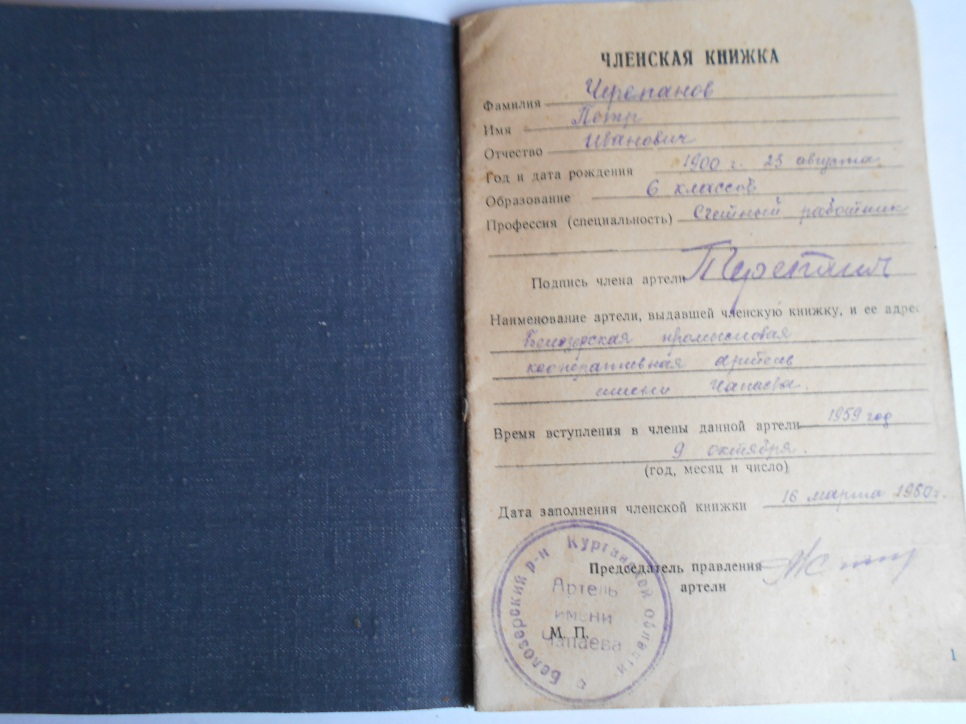 ЧЛЕНСКАЯ КНИЖКА
Фамилия Черепанов
Имя Петр
Отчество Иванович
Год и дата рождения 1900 г. 25 августа.
Образование 6 классов
Профессия (специальность) Счетный работник
Подпись члена артели
Наименование артели, выдавшей членскую книжку, и ее адрес
Белозерская промысловая
кооперативная артель
имени Чапаева.
Время вступления в члены данной артели 1959 год
9 октября.
(год, месяц и число)
Дата заполнения членской книжки 16 марта 1960 г.
Председатель правления
артели
М. П.
Белозерский р-н Курганской области
Артель
имени
Чапаева
1